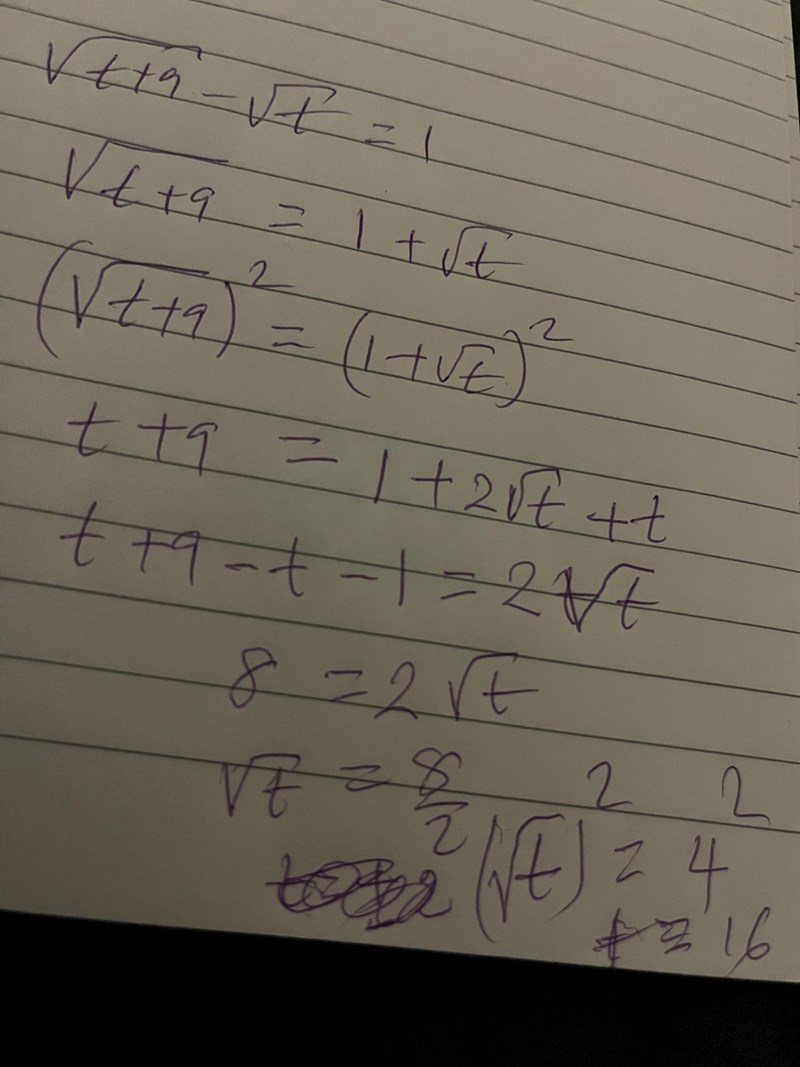 √(t+9) - √t = 1
√(t+9) = 1 + √t
(√(t+9))² = (1+√t)²
t + 9 = 1 + 2√t + t
t + 9 - t - 1 = 2√t
8 = 2√t
√t = 8/2
(√t)² = 4²
t = 16